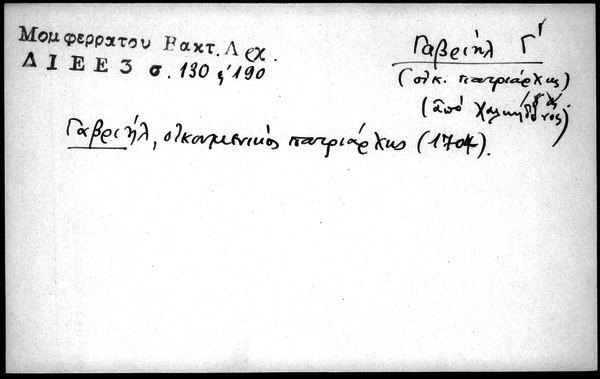 Μομφερρατου Βακτ. Αρχ.
ΔΙΕΕ 3 σ. 130 ἐ 190
Γαβριήλ Γ'
(οἰκ. πατριάρχης)
(ἀπό Χαλκηδόνος)
Γαβριήλ, οἰκουμενικός πατριάρχης (1704).